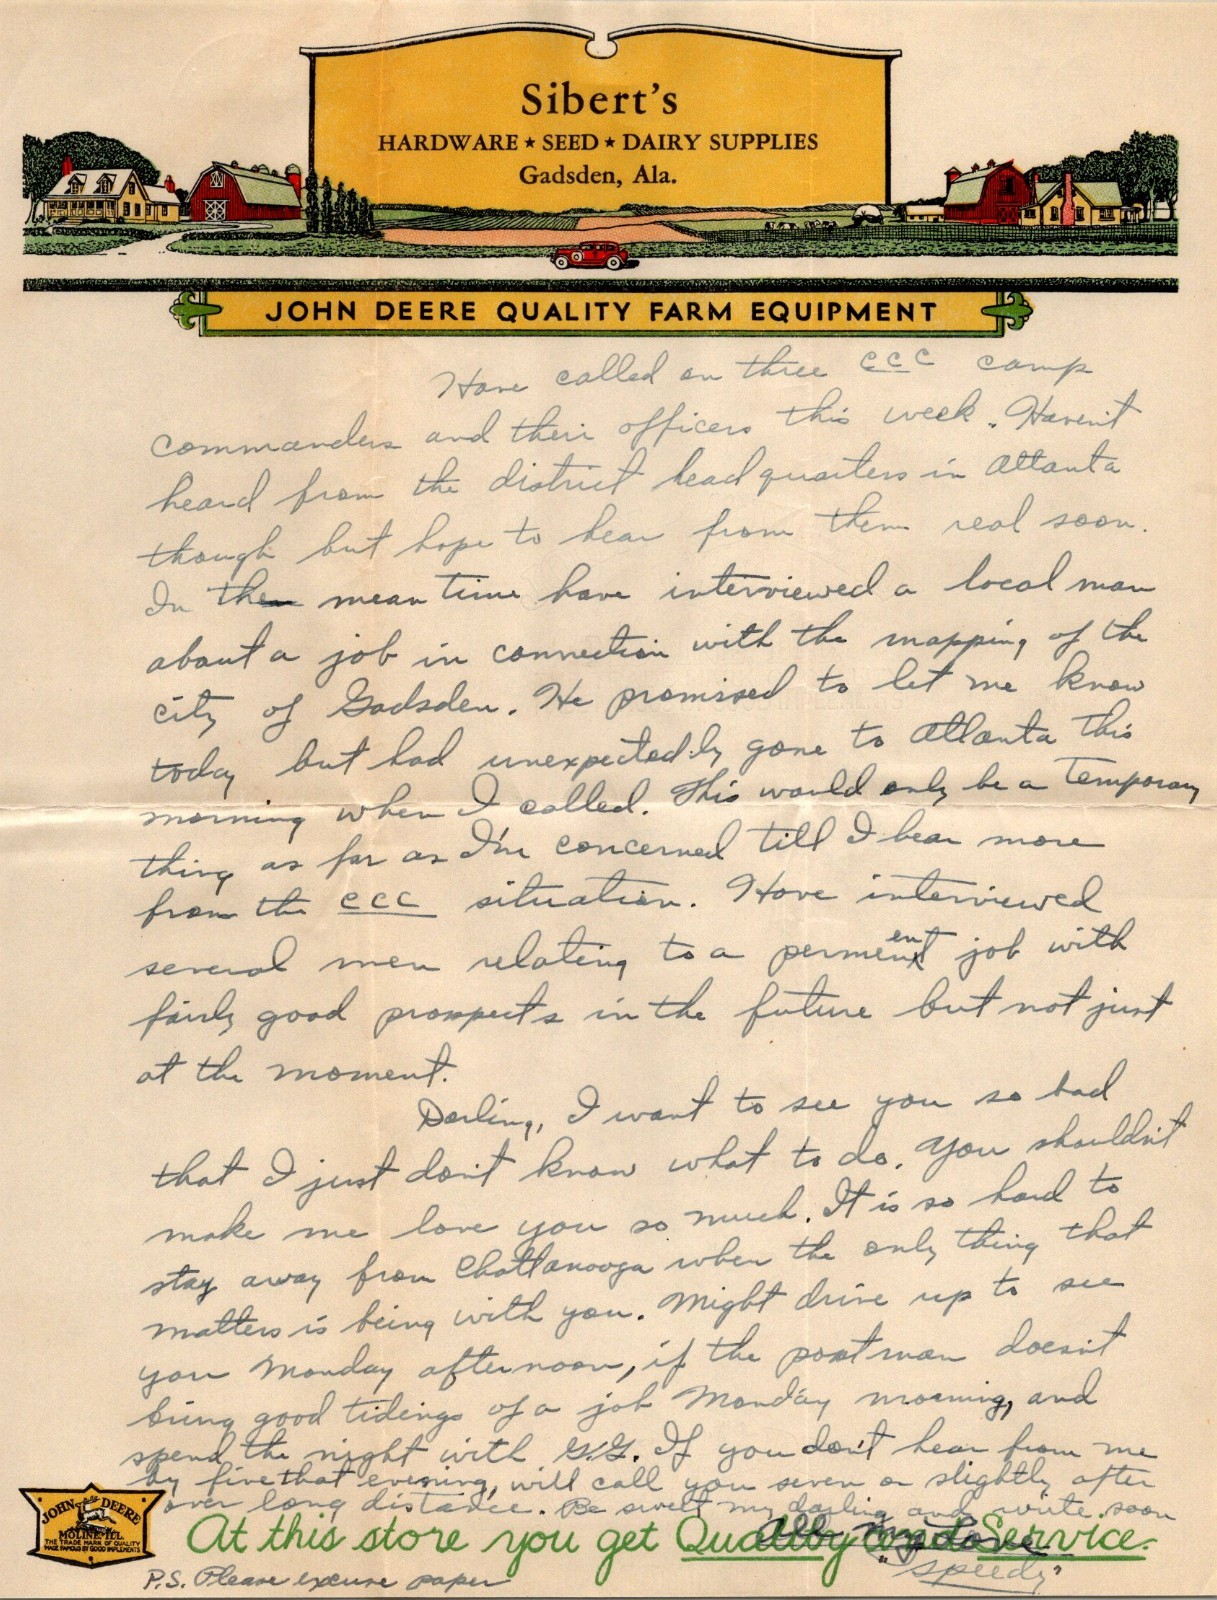 Sibert's
HARDWARE ★ SEED ★ DAIRY SUPPLIES
Gadsden, Ala.
JOHN DEERE QUALITY FARM EQUIPMENT
Have called on three CCC camp
commanders and their officers this week. Haven't
heard from the district headquarters in Atlanta
though but hope to hear from them real soon.
In the mean time have interviewed a local man
about a job in connection with the mapping of the
city of Gadsden. He promised to let me know
today but had unexpectedly gone to Atlanta this
morning when I called. This would only be a temporary
thing as far as I'm concerned till I hear more
from the CCC situation. Have interviewed
several men relating to a perment job with
fairly good prospects in the future but not just
at the moment.
Darling, I want to see you so bad
that I just don't know what to do. You shouldn't
make me love you so much. It is so hard to
stay away from Chattanooga when the only thing that
matters is being with you. Might drive up to see
you Monday afternoon, if the postman doesn't
bring good tidings of a job Monday morning, and
spend the night with G.G. If you don't hear from me
by five that evening, will call you seven or slightly after
over long distance. Be sweet my darling and write soon
All my Love
"Speedy"
JOHN DEERE
MOLINE, ILL.
THE TRADE MARK OF QUALITY
MADE FAMOUS BY GOOD IMPLEMENTS
At this store you get Quality and Service.
P.S. Please excuse paper